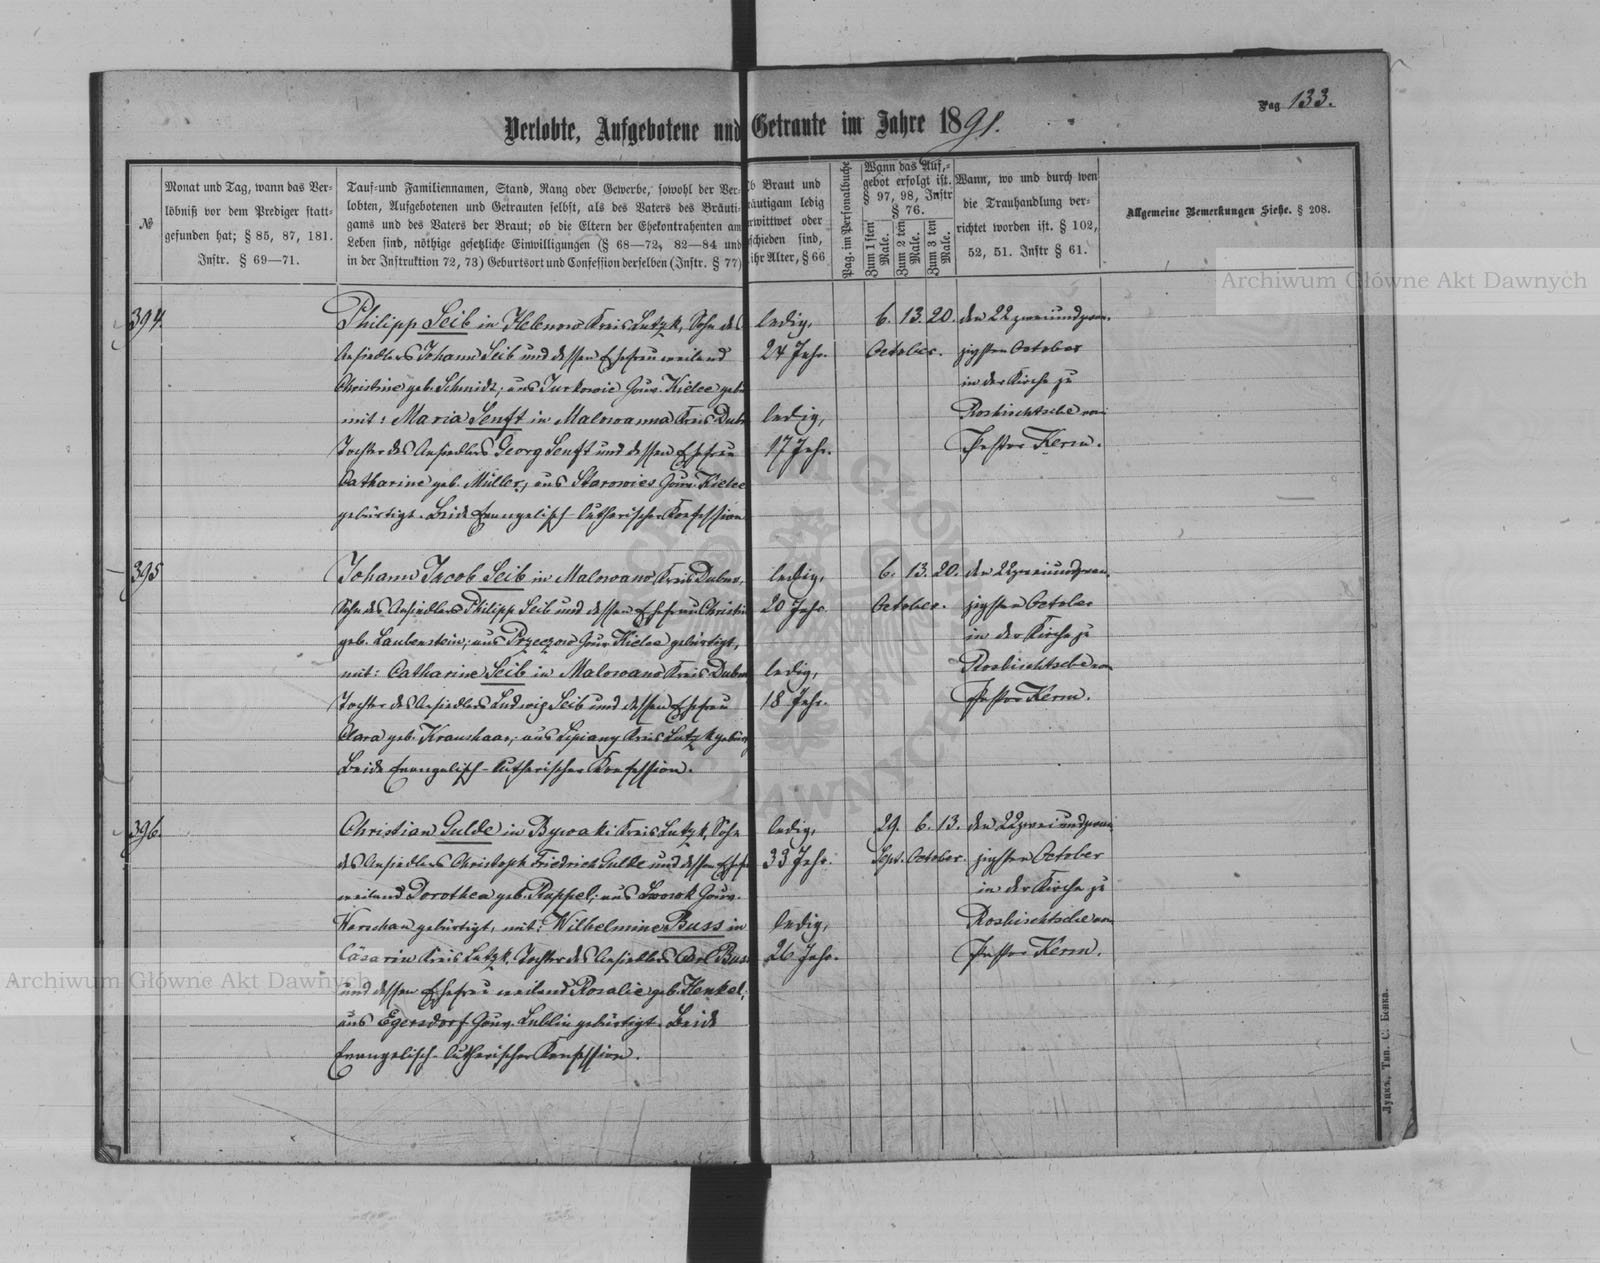 Pag 133.
Verlobte, Aufgebotene und Getraute im Jahre 1891.
№
Monat und Tag, wann das Ver-
löbniß vor dem Prediger statt-
gefunden hat; § 85, 87, 181.
Instr. § 69—71.
Tauf- und Familiennamen, Stand, Rang oder Gewerbe, sowohl der Ver-
lobten, Aufgebotenen und Getrauten selbst, als des Vaters des Bräuti-
gams und des Vaters der Braut; ob die Eltern der Ehekontrahenten am
Leben sind, nöthige gesetzliche Einwilligungen (§ 68—72, 82—84 und
in der Instruktion 72, 73) Geburtsort und Confession derselben (Instr. § 77)
b Braut und
räutigam ledig
rwittwet oder
schieden sind,
ihr Alter, § 66
Pag. im Personalbuche
Wann das Auf-
gebot erfolgt ist.
§ 97, 98, Instr
§ 76.
Zum 1 sten Male.
Zum 2 ten Male.
Zum 3 ten Male.
Wann, wo und durch wen
die Trauhandlung ver-
richtet worden ist. § 102,
52, 51. Instr § 61.
Allgemeine Bemerkungen Siehe. § 208.
394.
Philipp Seib in Helenow Kreis Lutzk, Sohn des
Ansiedlers Johann Seib und dessen Ehefrau weiland
Christine geb. Schmidt; aus Jurkowie Gouv. Kielce geb
mit: Maria Senft in Malowanna Kreis Dub
Tochter des Ansiedlers Georg Senft und dessen Ehefrau
Catharine geb. Müller, aus Starowies Gouv. Kielce
gebürtigt. Beide Evangelisch-lutherischer Konfession
ledig,
24 Jahr.
ledig,
17 Jahr.
6. 13. 20.
October.
den 22 zweiundzwan-
zigsten October
in der Kirche zu
Roshischtsche von
Pastor Kerm.
395
Johann Jacob Seib in Malowano Kreis Dubno,
Sohn des Ansiedlers Philipp Seib und dessen Ehefrau Christi
geb. Laubenstein; aus Przeczow Gouv. Kielce gebürtigt,
mit: Catharine Seib in Malowano Kreis Dubno
Tochter des Ansiedlers Ludwig Seib und dessen Ehefrau
Clara geb. Kraushaar; aus Lipiany Kreis Lutzk gebür
Beide Evangelisch-lutherischer Konfession.
ledig,
20 Jahr.
ledig,
18 Jahr.
6. 13. 20.
October.
den 22 zweiundzwan-
zigsten October
in der Kirche zu
Roshischtsche von
Pastor Kerm.
396.
Christian Gulde in Bywaki Kreis Lutzk, Sohn
des Ansiedlers Christoph Friedrich Gulde und dessen Ehefr
weiland Dorothea geb. Rappel; aus Gouv.
Warschau gebürtigt, mit: Wilhelmine Buss in
Cäsarin Kreis Lutzk, Tochter des Ansiedlers Carl Buss
und dessen Ehefrau weiland Rosalie geb. Henkel;
aus Egersdorf Gouv. Lublin gebürtigt. Beide
Evangelisch-lutherischer Konfession.
ledig,
33 Jahr.
ledig,
26 Jahr.
29. 6. 13.
Sept. October.
den 22 zweiundzwan
zigsten October
in der Kirche zu
Roshischtsche von
Pastor Kerm.
Луцкъ, Тип. С. Бенка.
Archiwum Główne Akt Dawnych
Archiwum Główne Akt Dawnych